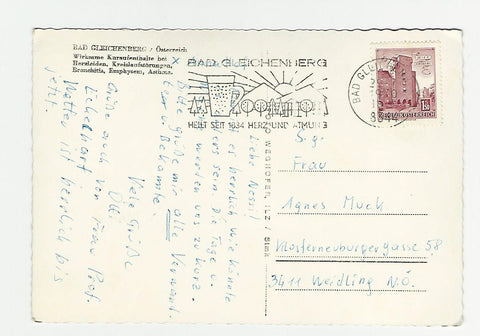 BAD GLEICHENBERG / Österreich
Wirksame Kuraufenthalte bei
Herzleiden, Kreislaufstörungen,
Bronchitis, Emphysem, Asthma.
BAD GLEICHENBERG
HEILT SEIT 1834 HERZ UND ATMUNG
BAD GLEI
8344
REPUBLIK ÖSTERREICH
WEGHOFER, ILZ / Stmk
Liebe
es herrlich wie könnte
sein. Die Tage
werden uns zu kurz.
Bitte grüße mir alle Verwandt.
u. Bekannte.
Viele Grüße
Olli
Grüße auch von Frau Prof.
Wetter ist herrlich bis
jetzt.
Sig.
Frau
Agnes Muck
Klosterneuburgergasse 58
3411 Weidling N.Ö.